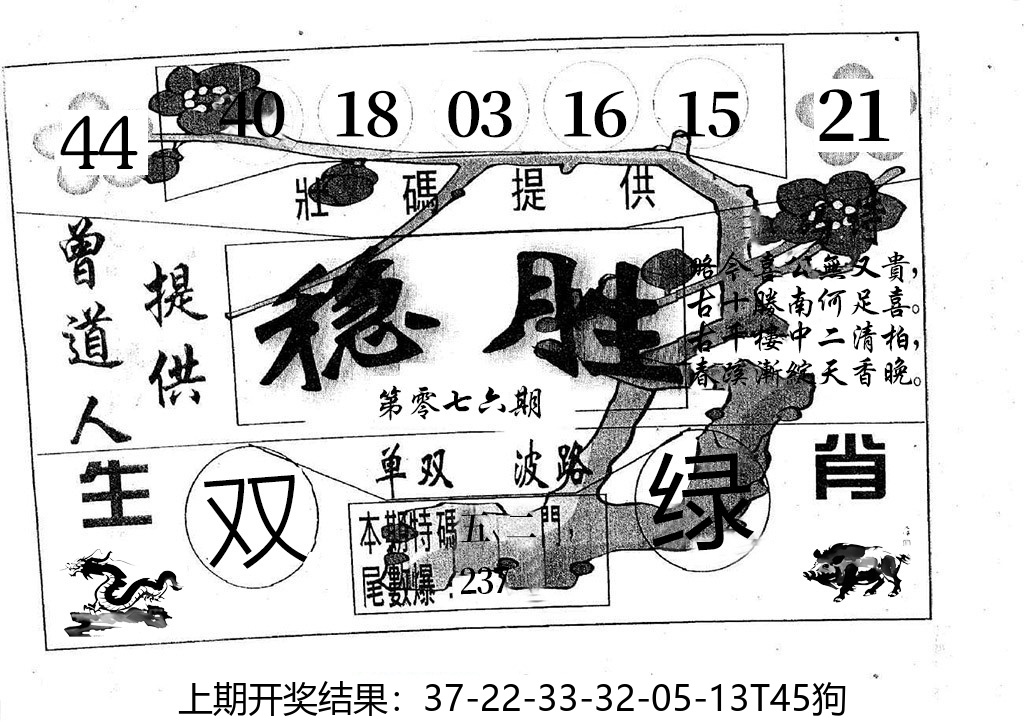 44 40 18 03 16 15 21
壯碼提供
曾道人
提供
稳胜
第零七六期
略今喜公無又貴，
古十勝南何足喜。
古平樓中二清柏，
春溪漸綻天香晚。
单双 波路
生肖
双
绿
本期特碼五、二門，
尾數爆：237
上期开奖结果：37-22-33-32-05-13T45狗